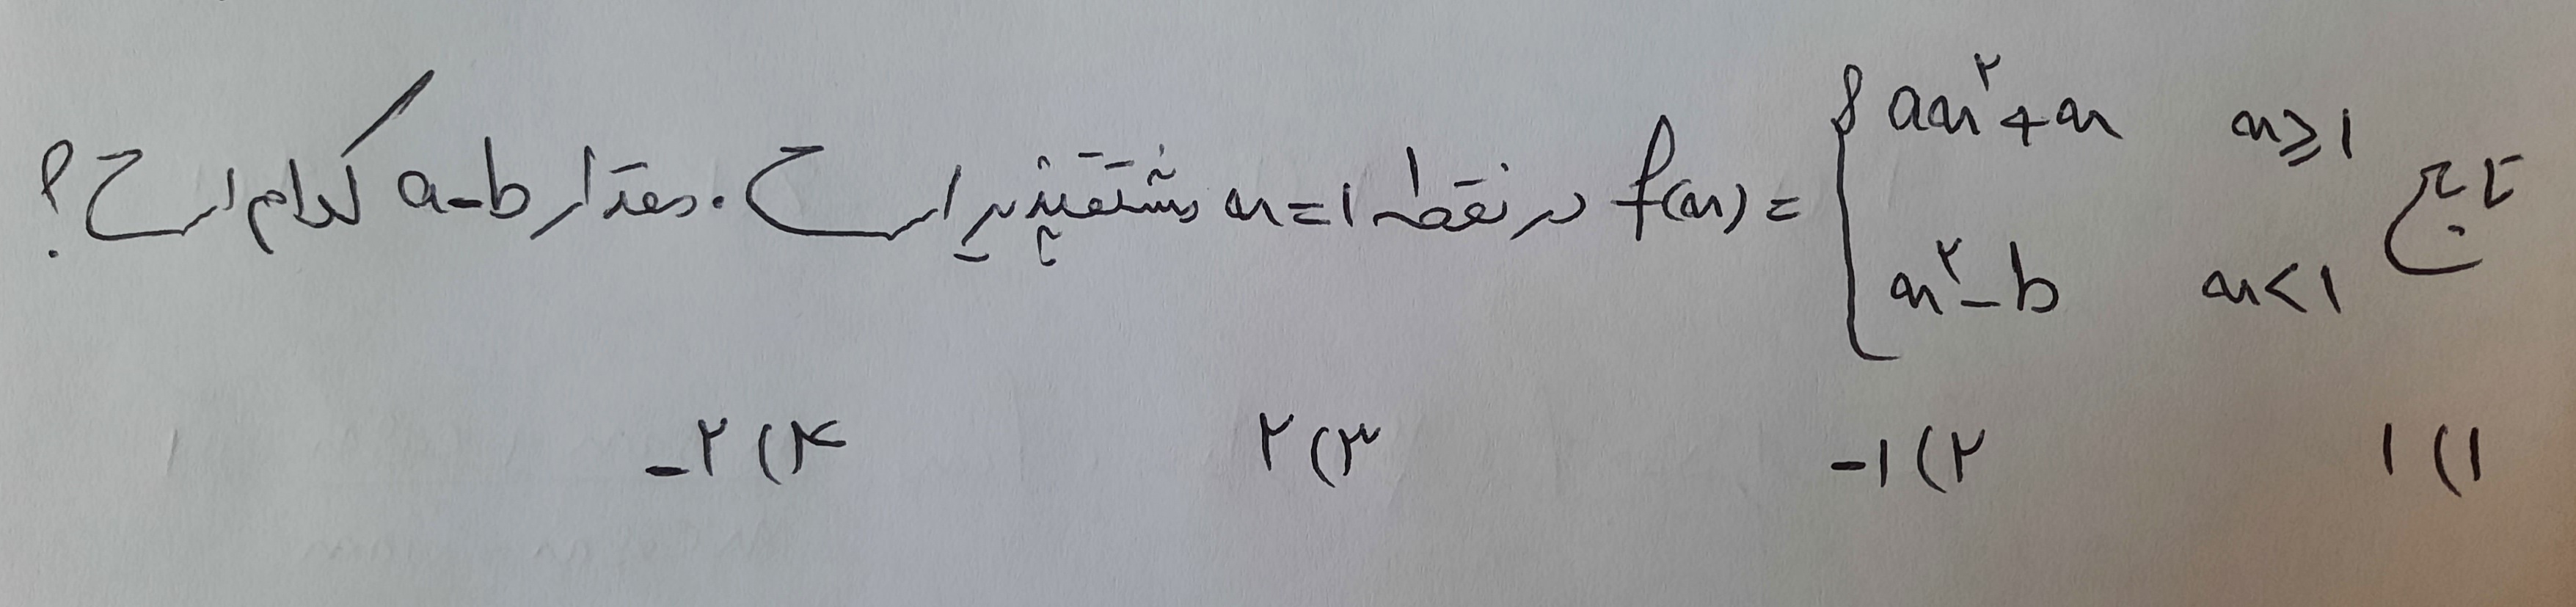 تابع f(x) = { ax² + x   x ≥ 1 در نقطه x = 1 مشتق‌پذیر است. مقدار a - b کدام است؟
x² - b   x < 1
۱) ۱   ۲) -۱   ۳) ۲   ۴) -۲